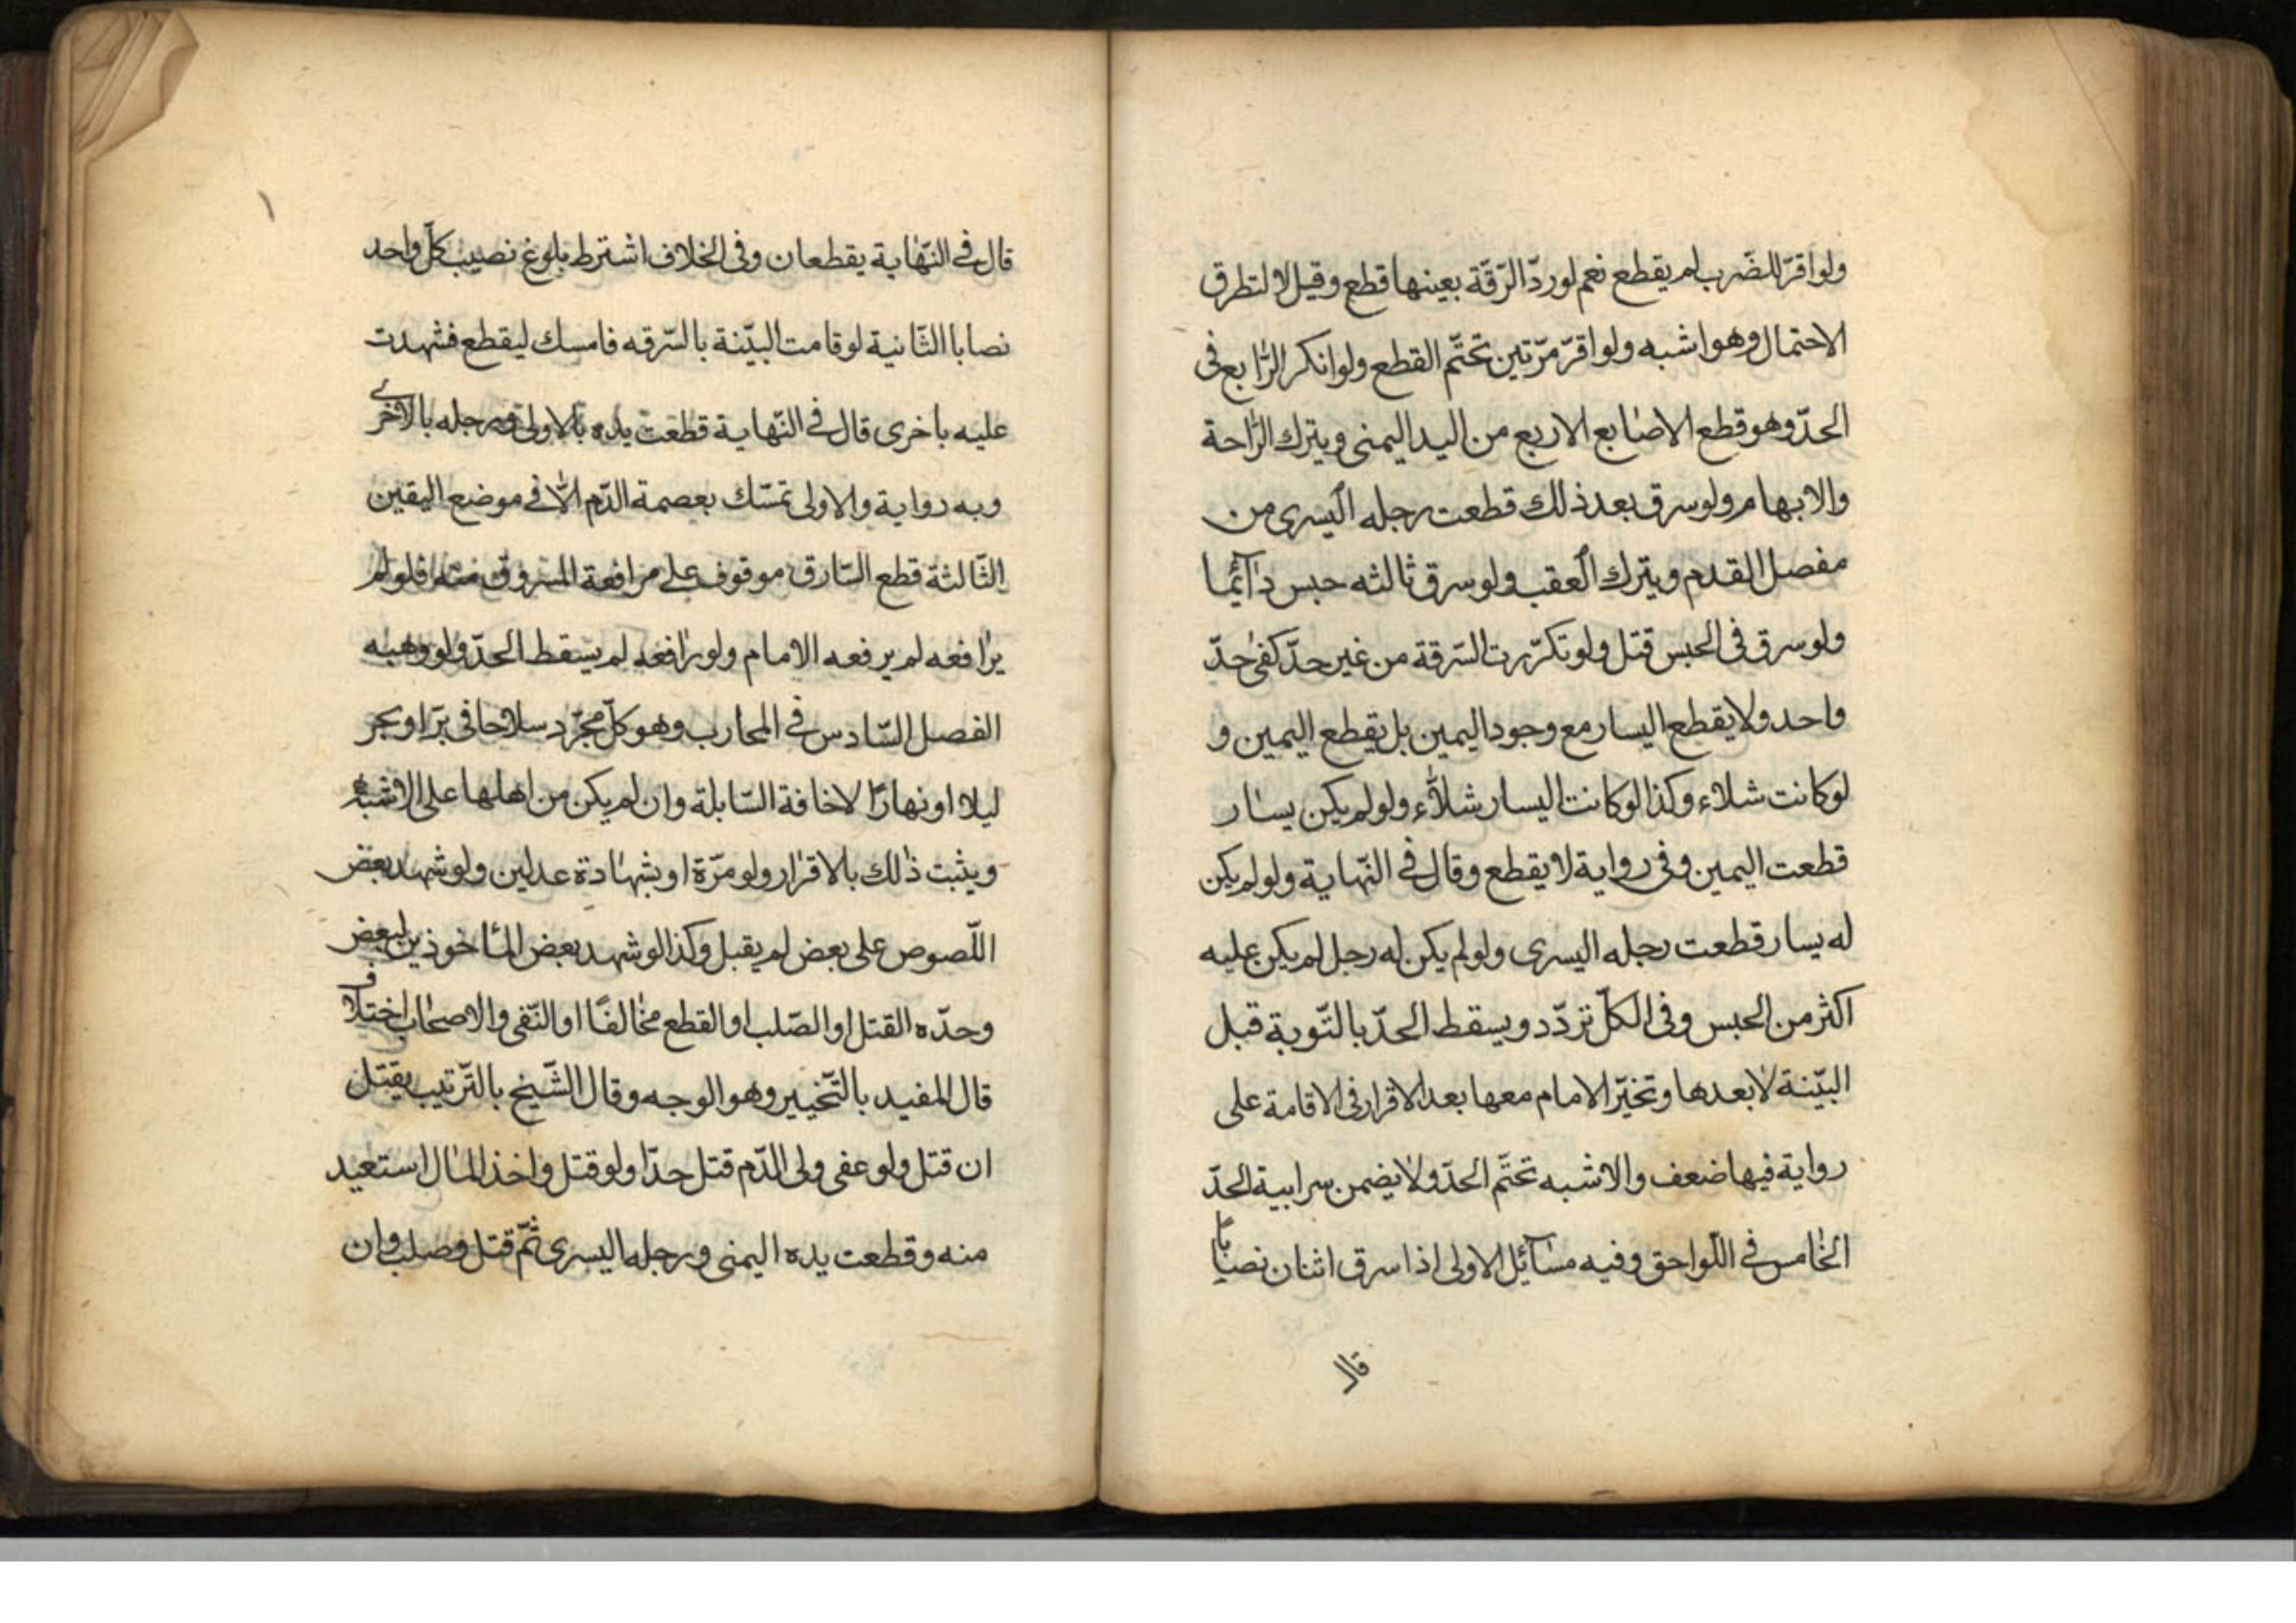 ولو اقرّ للضّرب لم يقطع نعم لو ردّ الرّقّة بعينها قطع وقيل لا لتطرق
الاحتمال وهو اشبه ولو اقرّ مرّتين تحتّم القطع ولو انكر الرّابع فى
الحدّ وهو قطع الاصابع الاربع من اليد اليمنى ويترك الرّاحة
والابهام ولو سرق بعد ذلك قطعت رجله اليسرى من
مفصل القدم ويترك العقب ولو سرق ثالثه حبس دآئما
ولو سرق فى الحبس قتل ولو تكرّرت السّرقة من غير حدّ كفى حدّ
واحد ولا يقطع اليسار مع وجود اليمين بل يقطع اليمين و
لو كانت شلاء وكذا لو كانت اليسار شلآء ولو لم يكن يسار
قطعت اليمين وفى رواية لا يقطع وقال فى النّهاية ولو لم يكن
له يسار قطعت رجله اليسرى ولو لم يكن له رجل لم يكن عليه
اكثر من الحبس وفى الكلّ تردّد ويسقط الحدّ بالتّوبة قبل
البيّنة لا بعدها وتخيّر الامام معها بعد الاقرار فى الاقامة على
رواية فيها ضعف والاشبه تحتّم الحدّ ولا يضمن سراية الحدّ
الخامس فى اللّواحق وفيه مسآئل الاولى اذا سرق اثنان نصابا
قال
قال فى النّهاية يقطعان وفى الخلاف اشترط بلوغ نصيب كلّ واحد
نصابا الثّانية لو قامت البيّنة بالسّرقه فامسك ليقطع فشهدت
عليه باخرى قال فى النّهاية قطعت يده بالاولى ورجله بالاخرى
وبه رواية والاولى تمسّك بعصمة الدّم الّا فى موضع اليقين
الثّالثة قطع السّارق موقوف على مرافعة المسروق منه فلو لم
يرافعه لم يرفعه الامام ولو رافعه لم يسقط الحدّ ولو وهبه
الفصل السّادس فى المحارب وهو كلّ مجرّد سلاحا فى برّ او بحر
ليلا او نهارًا لاخافة السّابلة وان لم يكن من اهلها على الاشبه
ويثبت ذلك بالاقرار ولو مرّة او بشهادة عدلين ولو شهد بعض
اللّصوص على بعض لم يقبل وكذا لو شهد بعض المأخوذين لبعض
وحدّه القتل او الصّلب او القطع مخالفًا او النّفى والاصحاب اختلاف
قال المفيد بالتّخيير وهو الوجه وقال الشّيخ بالتّرتيب يقتل
ان قتل ولو عفى ولى الدّم قتل حدّا ولو قتل واخذ المال استعيد
منه وقطعت يده اليمنى ورجله اليسرى ثمّ قتل وصلب وان